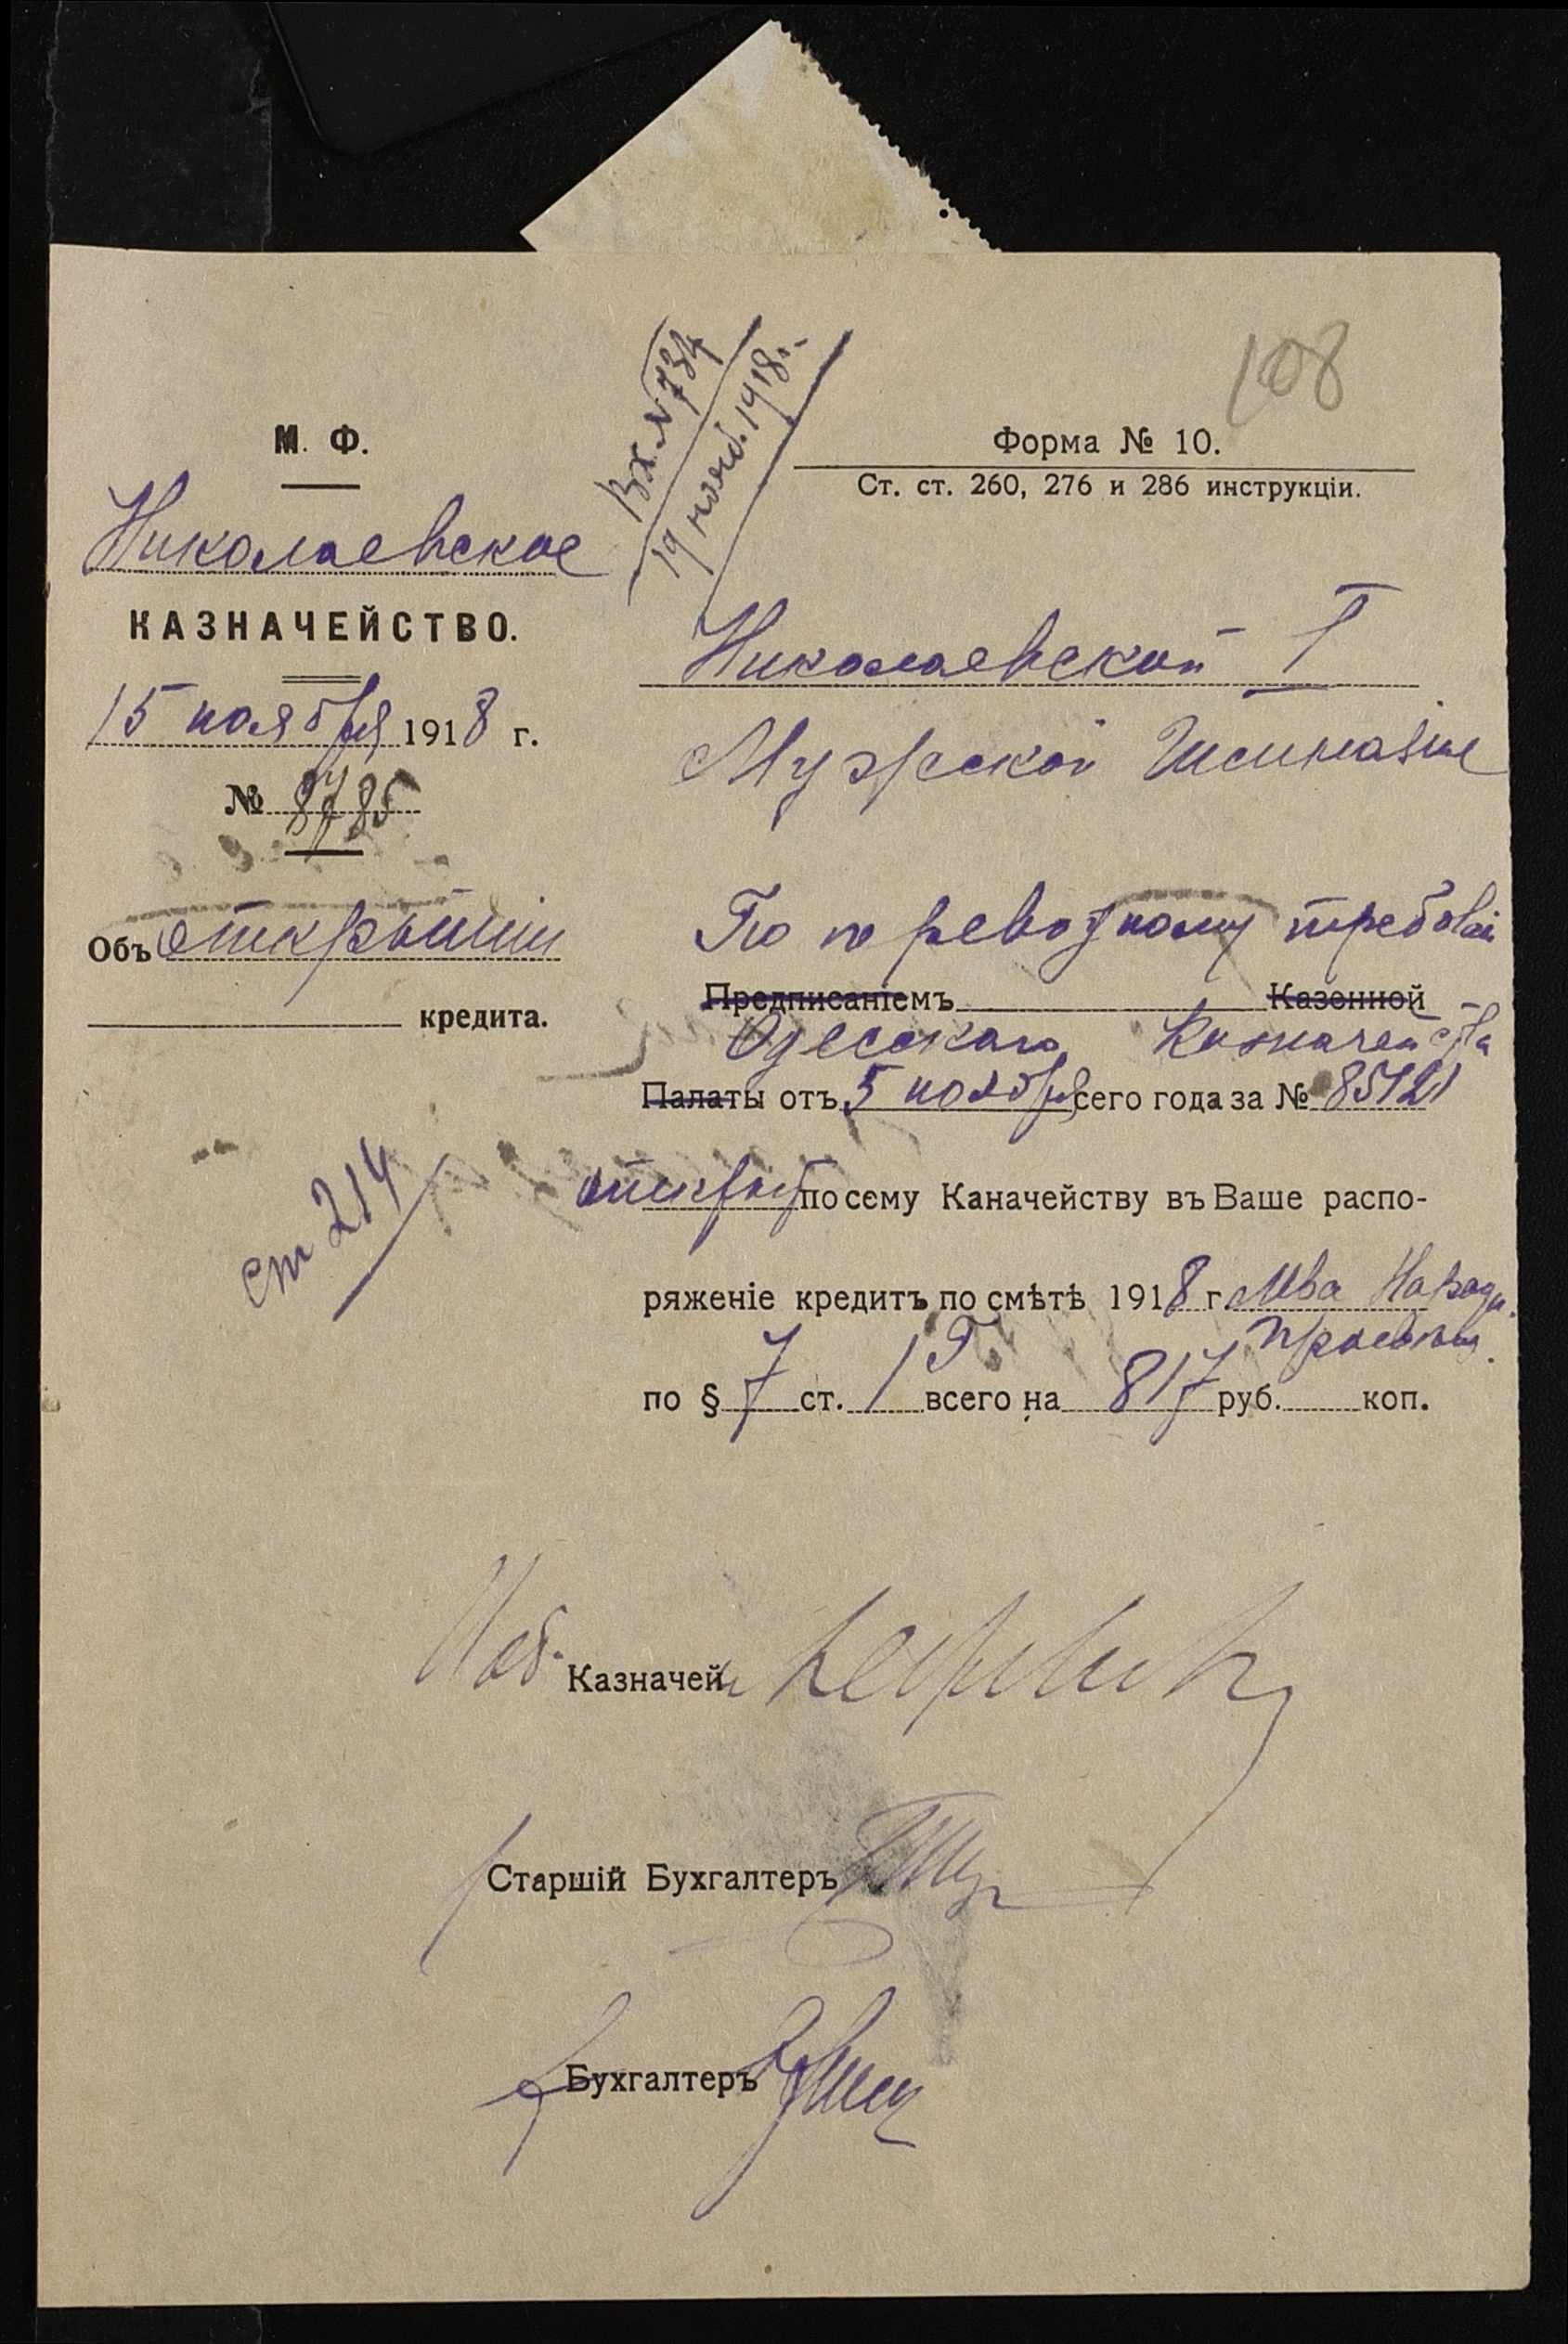 108
Вх. № 734
19 нояб. 1918 г.
М. Ф.
Николаевское
КАЗНАЧЕЙСТВО.
15 ноября 1918 г.
№ 8785
Объ открытіи
кредита.
ст 214
Форма № 10.
Ст. ст. 260, 276 и 286 инструкціи.
Николаевской I
Мужской Гимназіи
По переводному требован
Предписаніемъ Казенной
Одесскаго Казначейства
Палаты отъ 5 ноября сего года за №
открытъ по сему Каначейству въ Ваше распо-
ряженіе кредитъ по смѣтѣ 1918 г. Мва Народн.
Просвѣщ.
по § 7 ст. 1 всего на 817 руб. коп.
Казначей
Старшій Бухгалтеръ
Бухгалтеръ